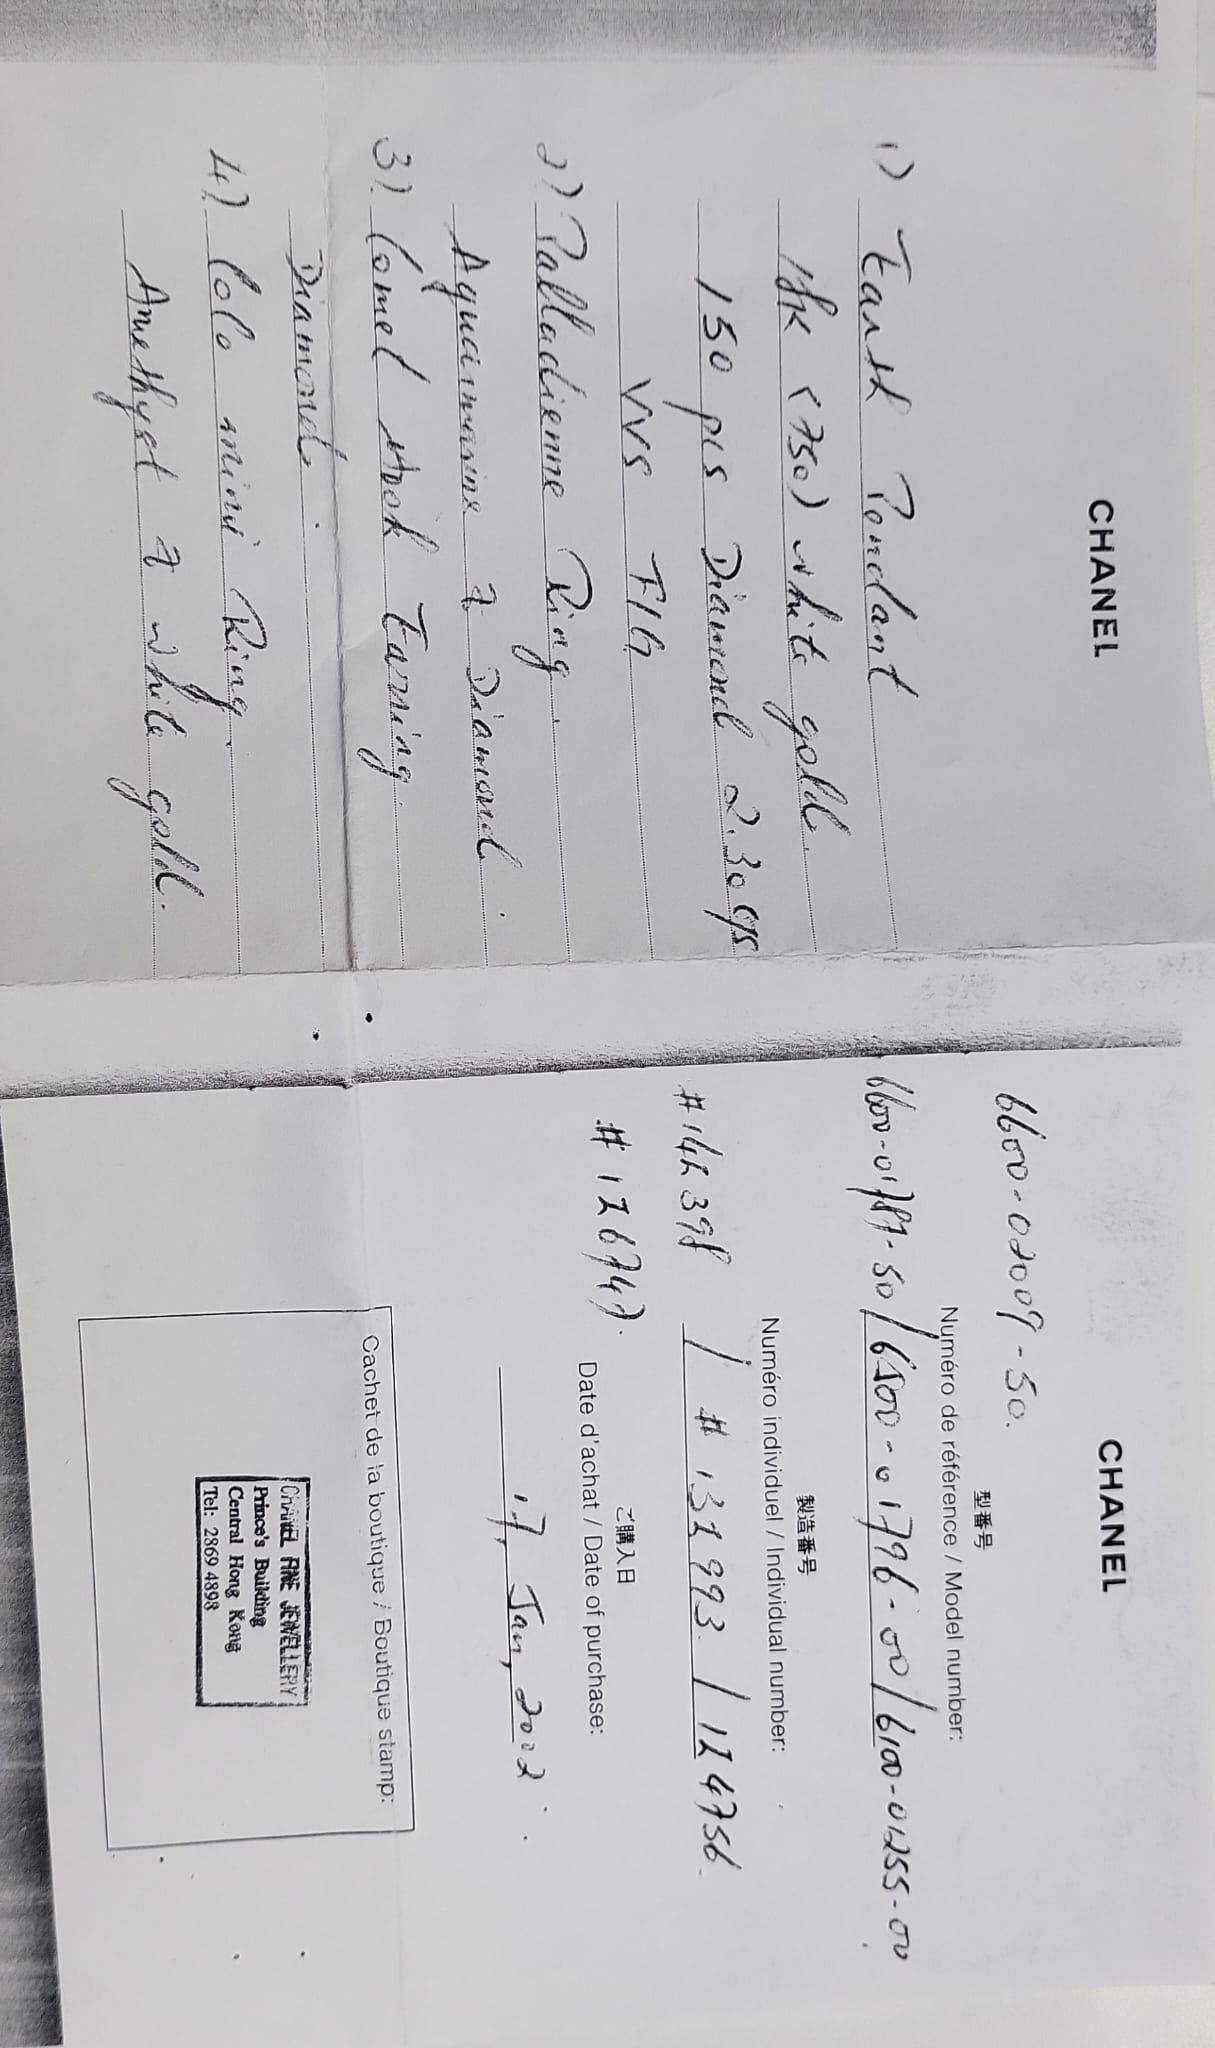 CHANEL
1) Earth Pendant
18K (750) white gold.
150 pcs Diamond 2.30 cts
VVS F/G
2) Palladienne Ring.
Aquamarine & Diamond.
3) Comet Hook Earring.
Diamond.
4) Coco mini Ring.
Amethyst & white gold.
CHANEL
6600-02009-50.
型番号
Numéro de référence / Model number:
6600-01787-50/6500-01796-00/6100-01255-00
製造番号
Numéro individuel / Individual number:
/ # 131993. / 124756.
ご購入日
Date d'achat / Date of purchase:
17, Jan, 2002.
Cachet de la boutique / Boutique stamp:
CHANEL FINE JEWELLERY
Prince's Building
Central Hong Kong
Tel: 2869 4898